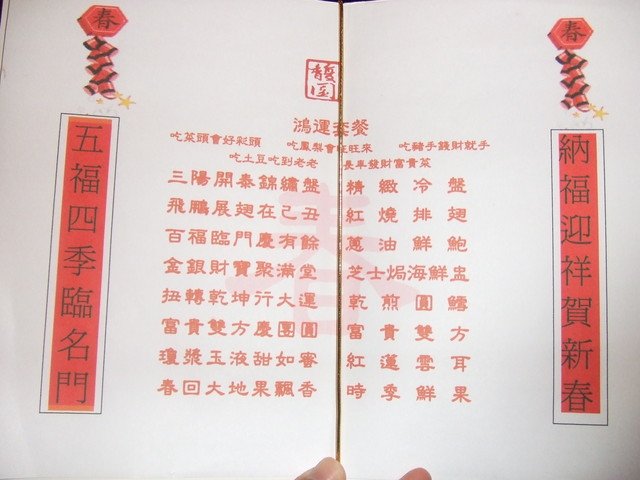 春
春
五福四季臨名門
納福迎祥賀新春
鴻運套餐
吃菜頭會好彩頭 吃鳳梨會旺旺來 吃豬手錢財就手
吃土豆吃到老老 長年發財富貴菜
三陽開泰錦繡盤 精緻冷盤
飛鵬展翅在己丑 紅燒排翅
百福臨門慶有餘 蔥油鮮鮑
金銀財寶聚滿堂 芝士焗海鮮盅
扭轉乾坤行大運 乾煎圓鱈
富貴雙方慶團圓 富貴雙方
瓊漿玉液甜如蜜 紅蓮雲耳
春回大地果飄香 時季鮮果
春